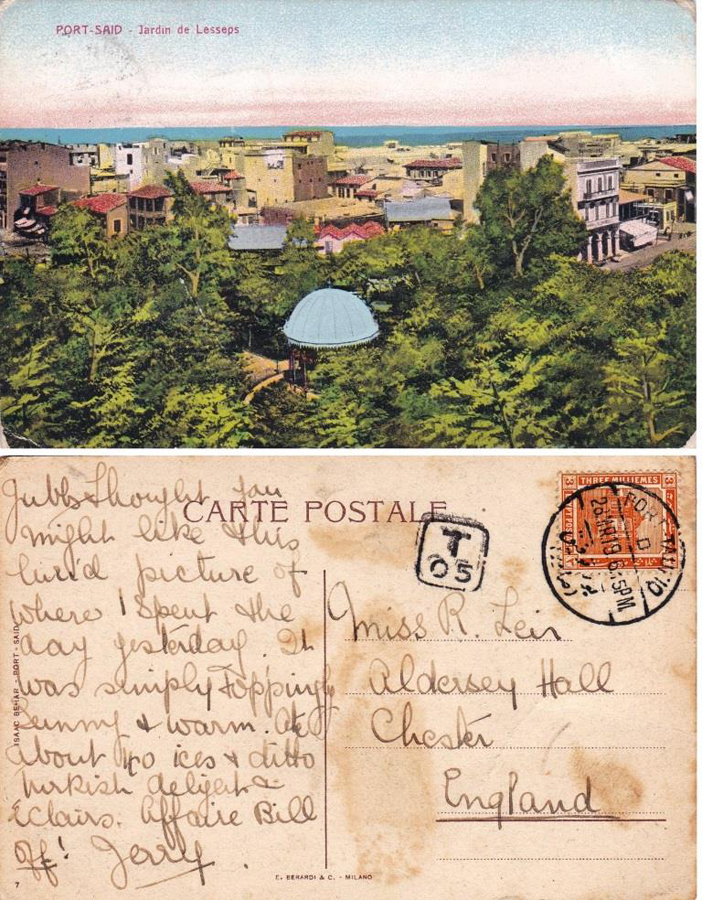 PORT-SAID - Jardin de Lesseps
CARTE POSTALE
Jubbs thought you
might like this
lurid picture of
where I spent the
day yesterday. It
was simply toppingly
sunny & warm. Ate
about 40 ices & ditto
turkish delight &
Eclairs. Affaire Bill
off! Jerry.
ISAAC BEHAR - PORT-SAID
7
E. BERARDI & C. - MILANO
T
05
THREE MILLIEMES
EGYPT POSTAGE
PORT SAID
28 MR 19 6.15 PM
Miss R. Leir
Aldersey Hall
Chester
England